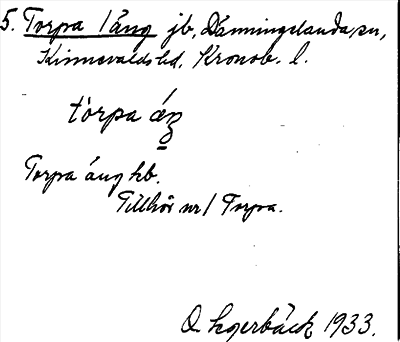 5. Torpa 1 äng jb, Dänningelanda sn,
Kinnevalds hd. Kronob. l.
tórpa äŋ
Torpa äng hb.
Tillhör nr 1 Torpa.
O. Lagerbäck 1933.